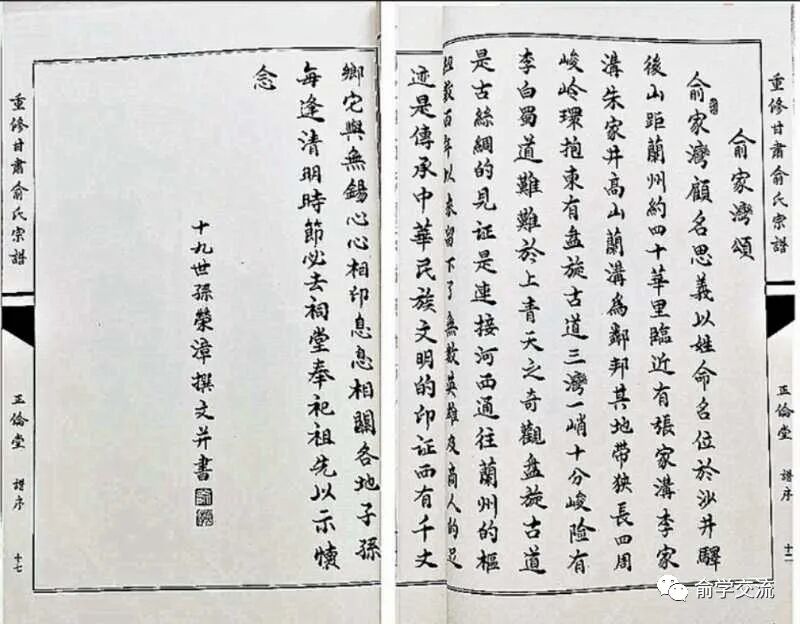 重修甘肅俞氏宗譜
正倫堂
譜序
俞家灣頌
俞家灣顧名思義以姓命名位於沙井驛
後山距蘭州約四十華里臨近有張家溝李家
溝朱家井高山蘭溝為鄰邦其地帶狹長四周
峻岭環抱東有盘旋古道三灣一峭十分峻险有
李白蜀道難難於上青天之奇觀盘旋古道
是古絲綢的見证是連接河西通往蘭州的樞
纽數百年以來留下了無數英雄及商人的足
迹是傳承中華民族文明的印证西有千丈
鄉宅與無錫心心相印息息相關各地子孫
每逢清明時節必去祠堂奉祀祖先以示懷
念
十九世孫榮漳撰文并書
重修甘肅俞氏宗譜
正倫堂
譜序
十七
俞学交流